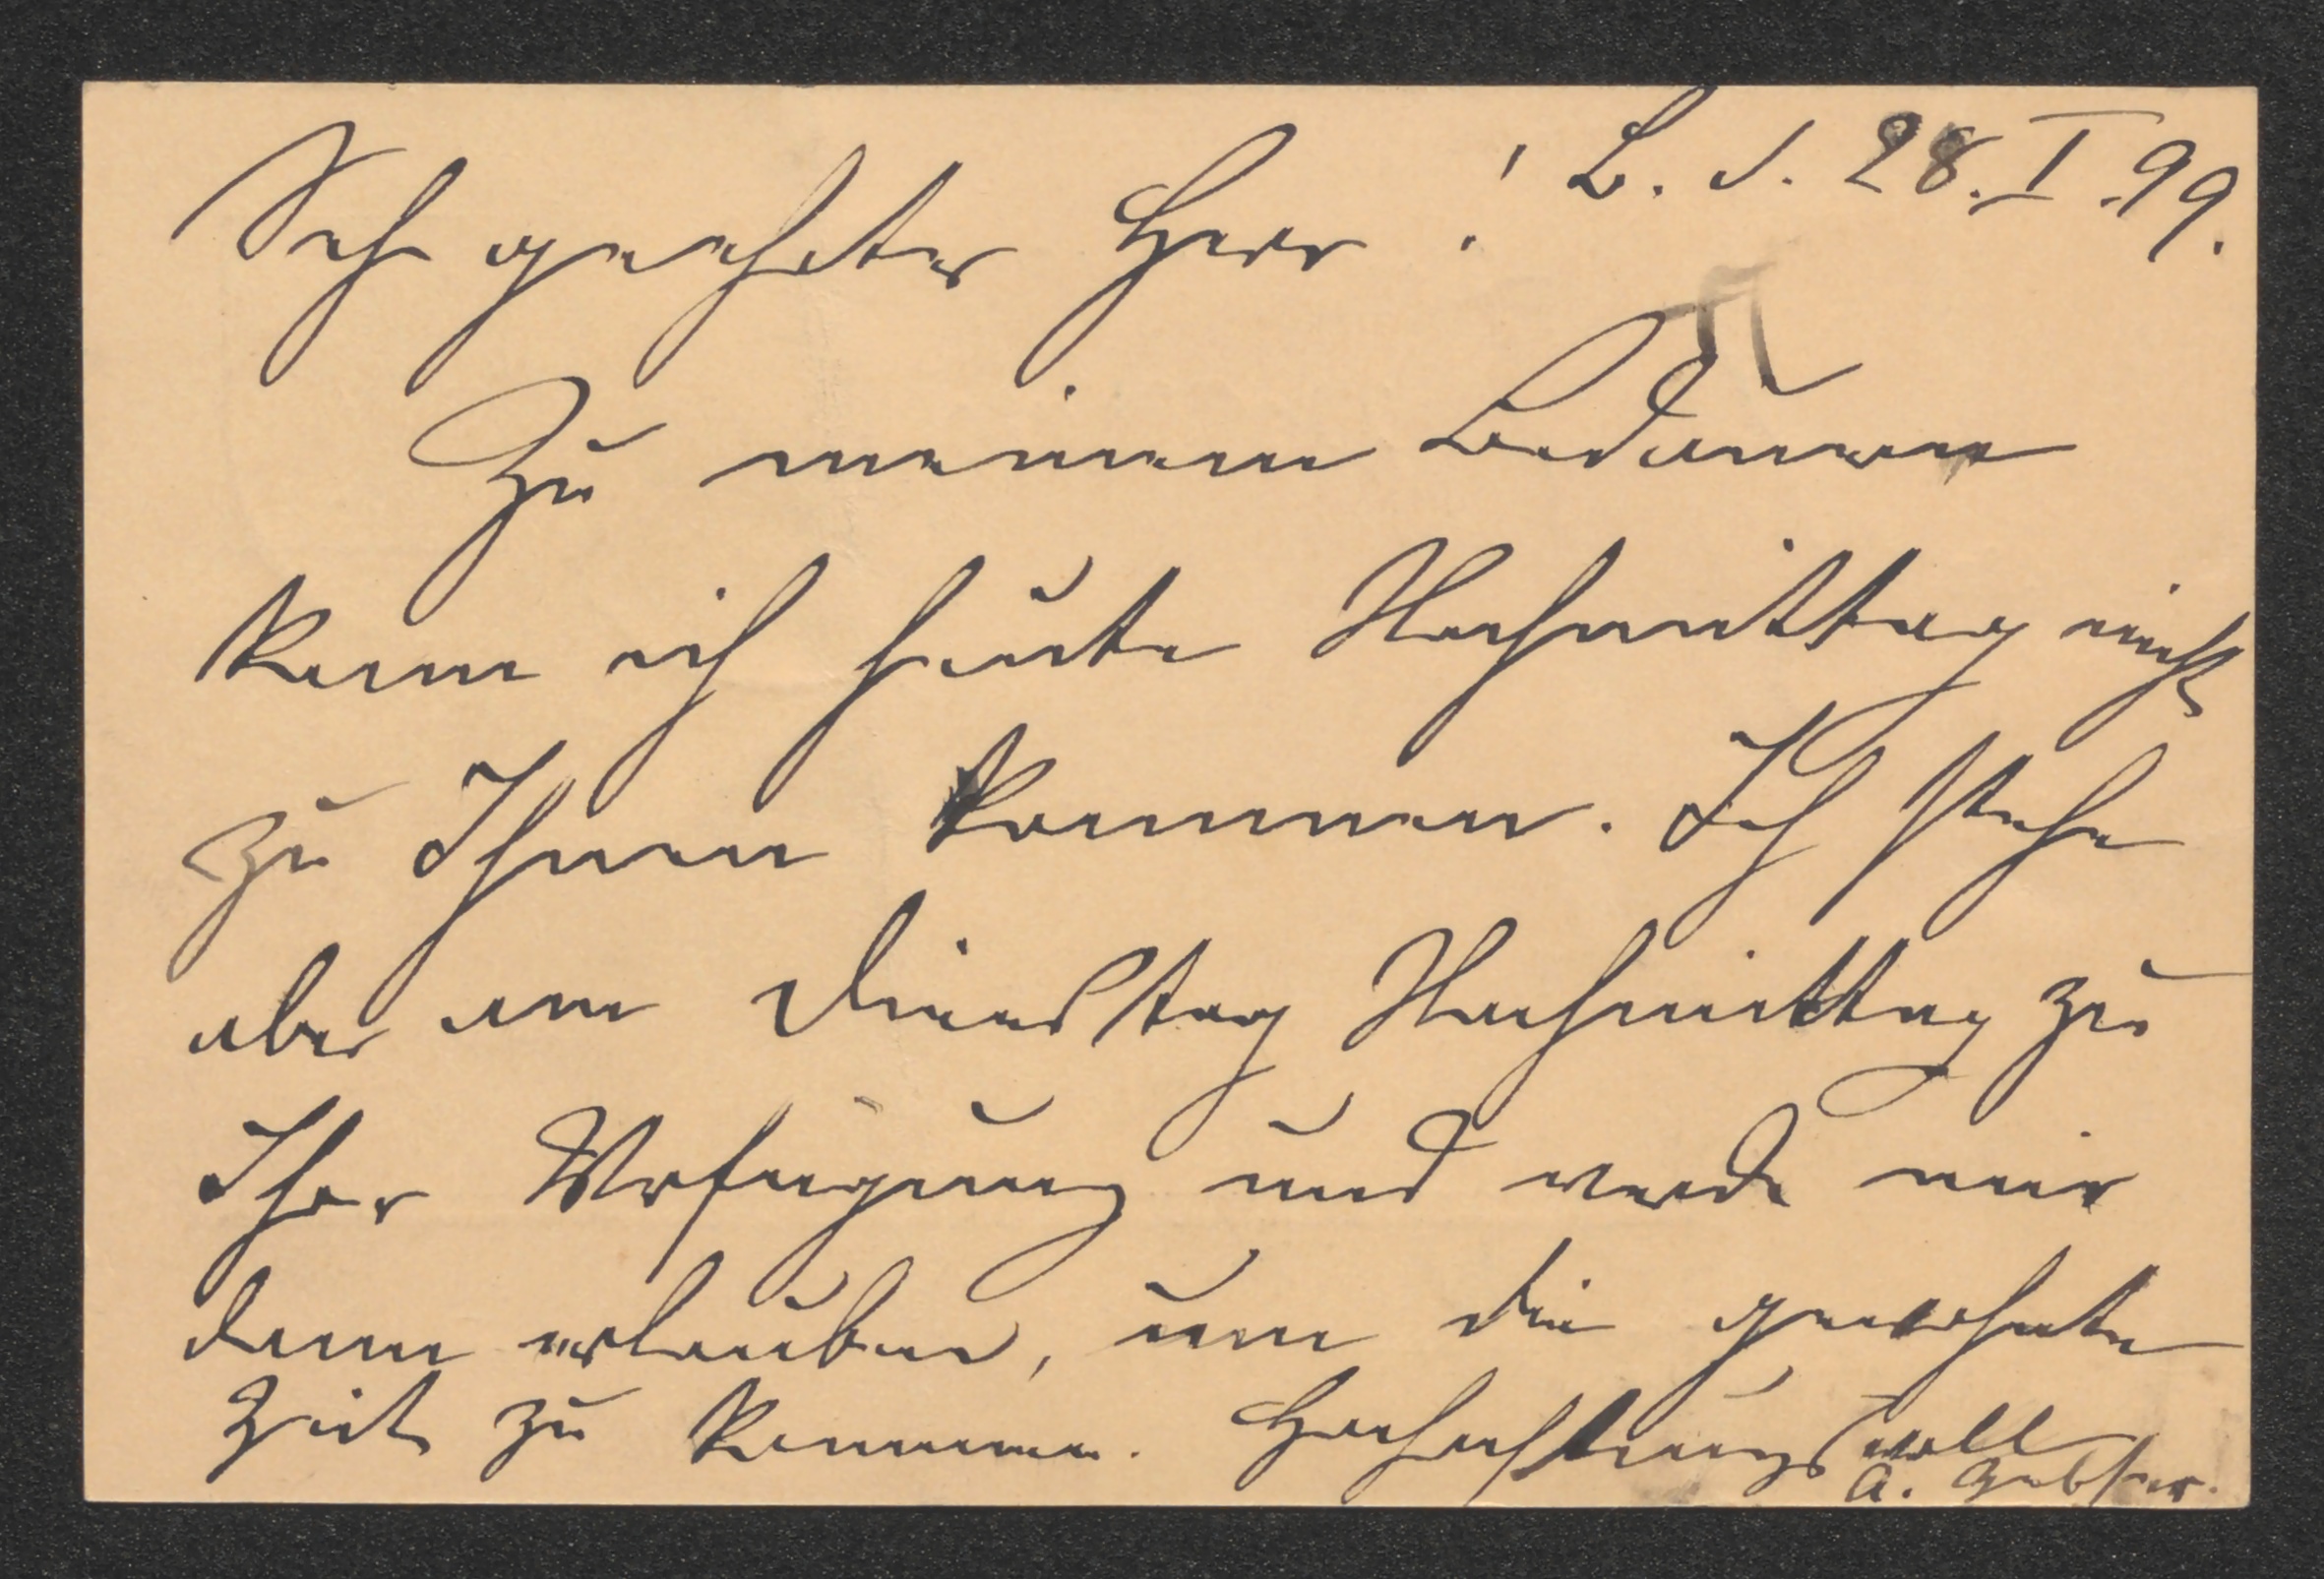 Sehr geehrter Herr! B. d. 28. I. 99.
Zu meinem Bedauern
kann ich heute Nachmittag nicht
zu Ihnen kommen. Ich stehe
aber am Dienstag Nachmittag zu
Ihrer Verfügung und werde mir
dann erlauben, um die gewohnte
Zeit zu kommen. Hochachtungsvoll
A. Gebhser.